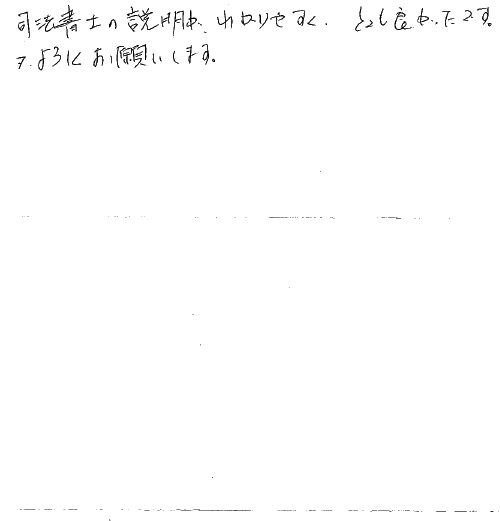 司法書士の説明が、わかりやすく、とても良かったです。
ようにお願いします。